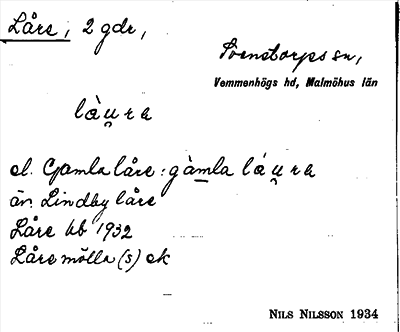 Låre, 2 gdr,
Svenstorps sn,
Vemmenhögs hd, Malmöhus län
làu̯rə
el. Gamla låre: gàmla láu̯rə
än. Lindby låre
Låre kb 1932
Låre mölla (s) ek
NILS NILSSON 1934